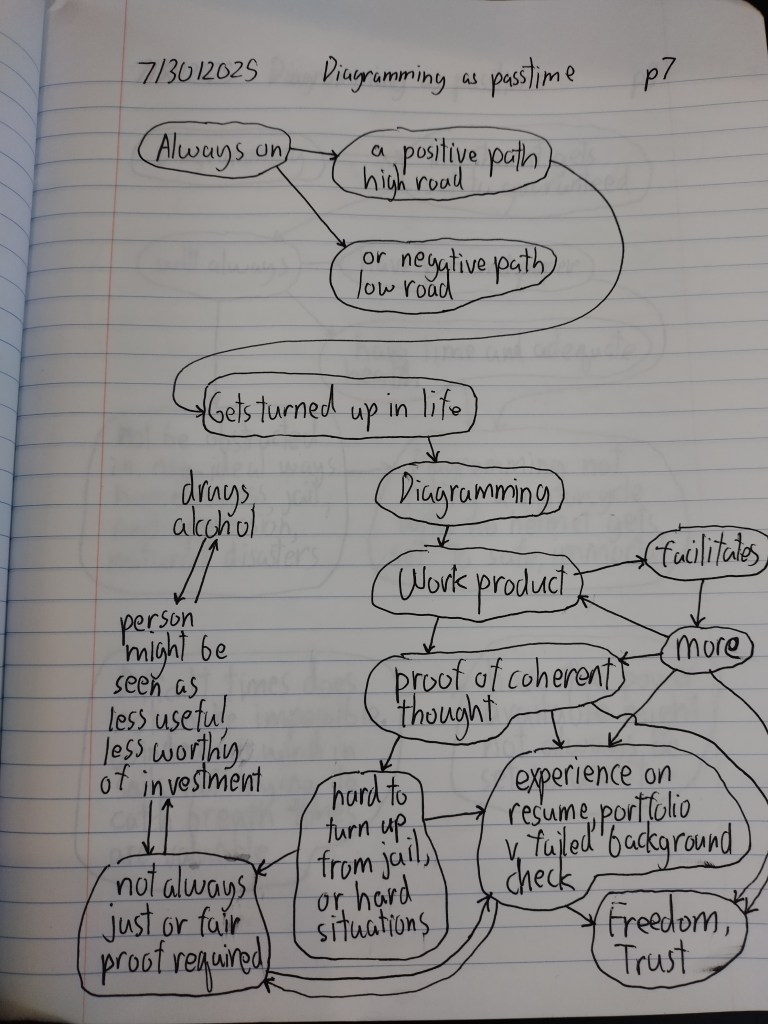 7/30/2025 Diagramming as passtime p7
Always on
a positive path
high road
or negative path
low road
Gets turned up in life
Diagramming
drugs
alcohol
Work product
facilitates
more
person
might be
seen as
less useful,
less worthy
of investment
proof of coherent
thought
hard to
turn up
from jail,
or hard
situations
experience on
resume, portfolio
v. failed background
check
not always
just or fair
proof required
Freedom,
Trust